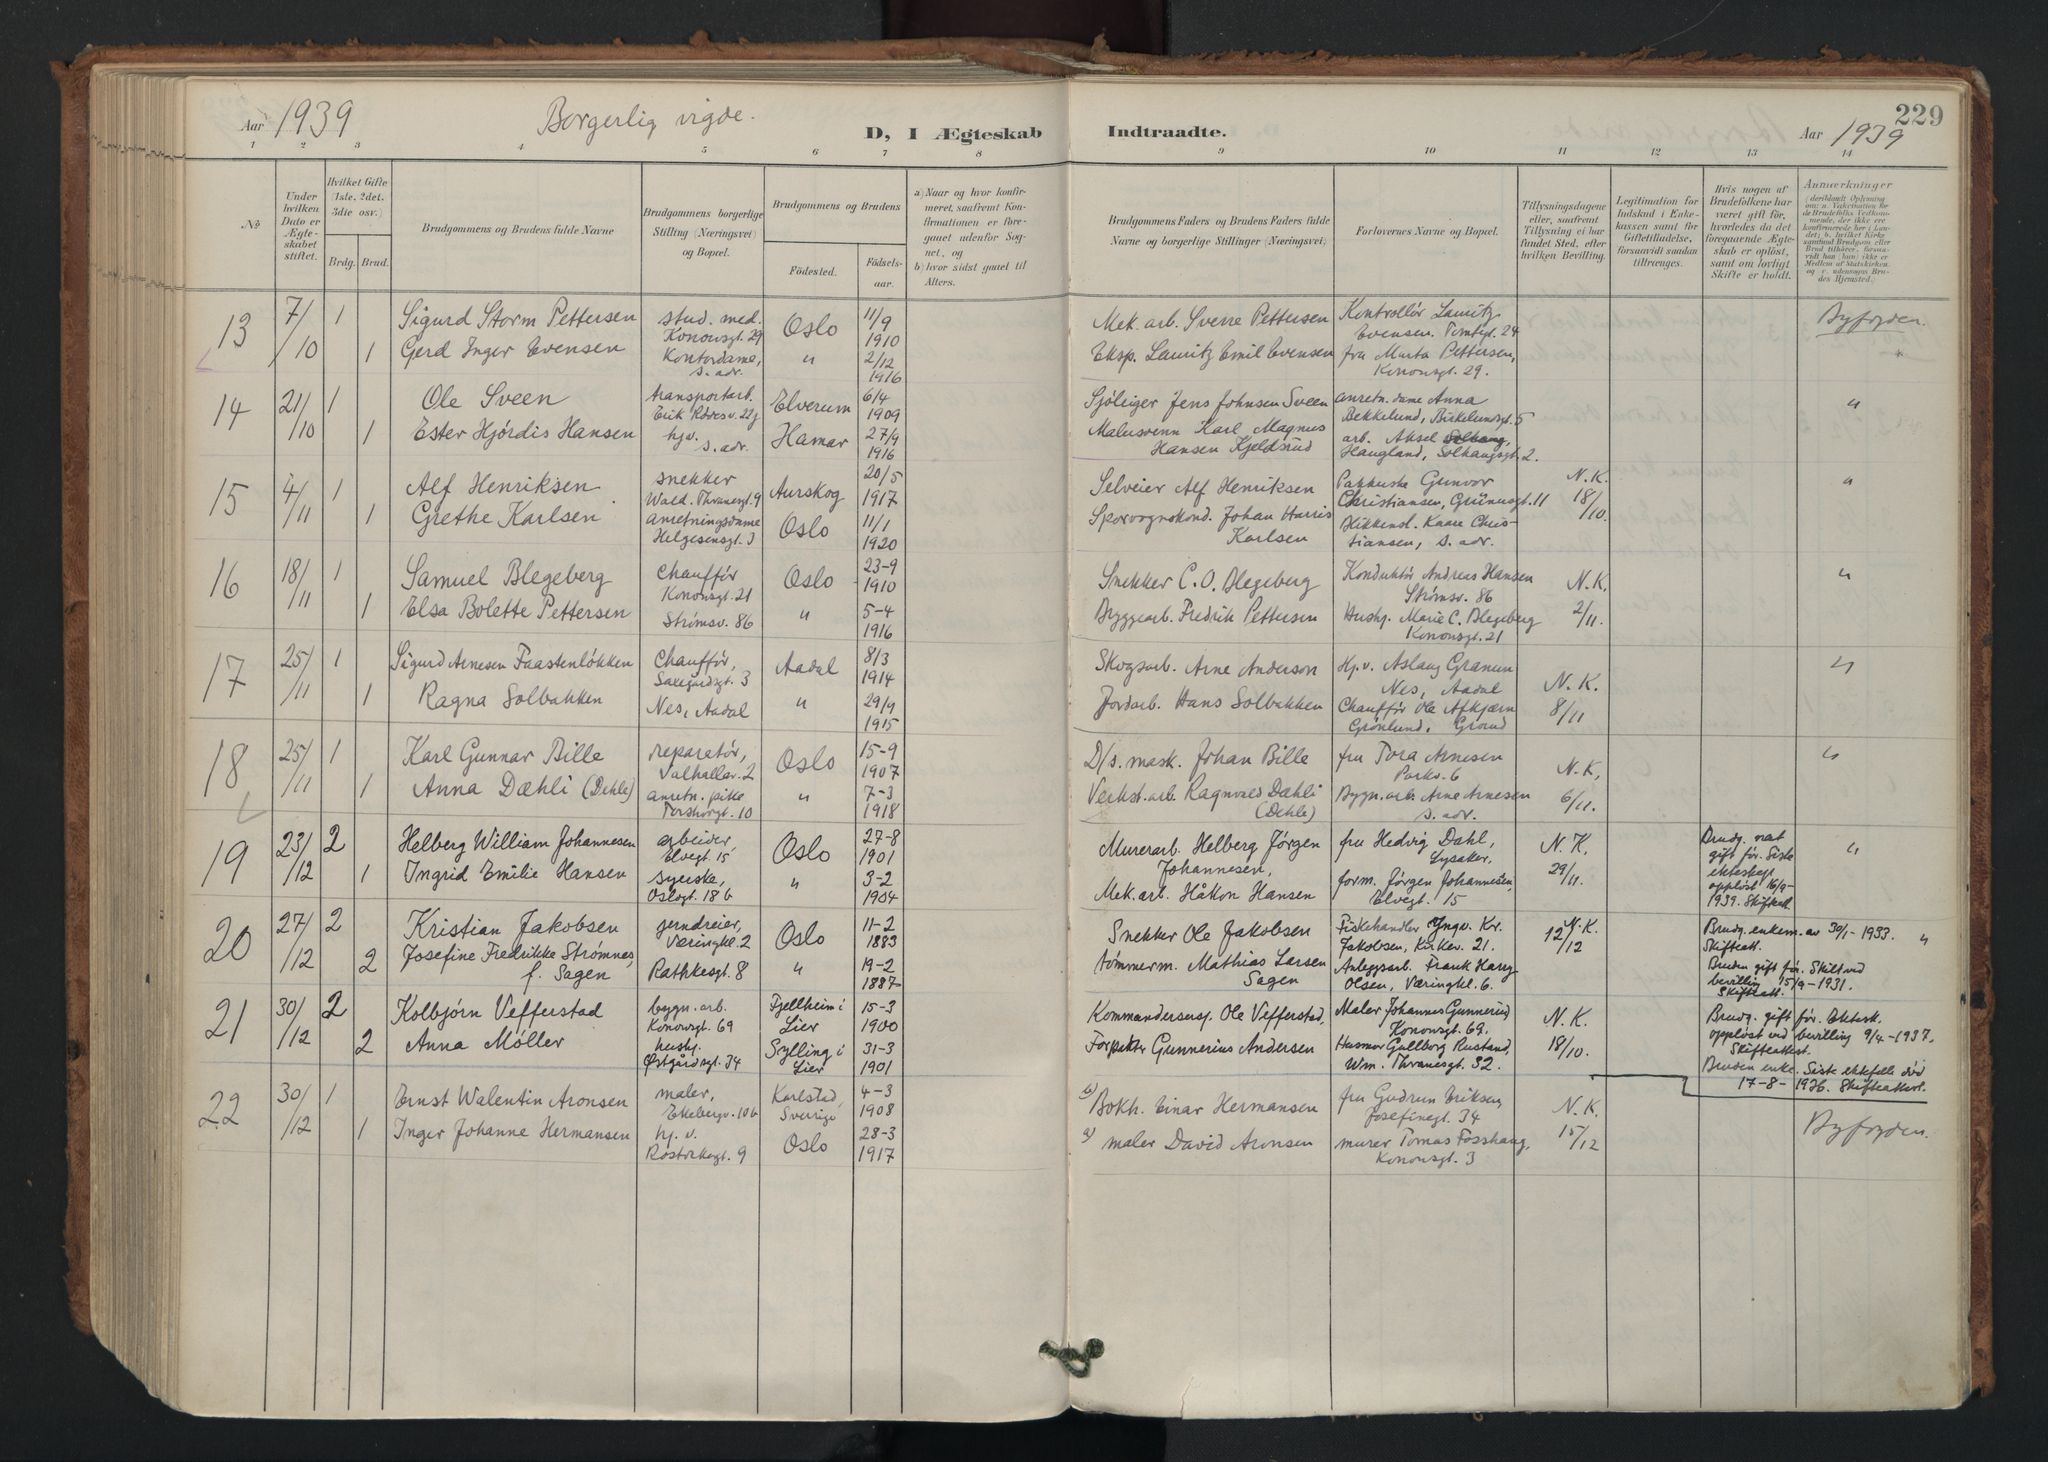 229
Aar 1939 Borgerlig vigde. D, I Ægteskab Indtraadte. Aar 1939
1 2 3 4 5 6 7 8 9 10 11 12 13 14
№
Under hvilken Dato er Ægteskabet stiftet.
Hvilket Gifte (1ste, 2det, 3die osv.)
Brdg. Brud.
Brudgommens og Brudens fulde Navne
Brudgommens borgerlige Stilling (Næringsvei) og Bopæl.
Brudgommens og Brudens
Fødested. Fødselsaar.
a) Naar og hvor konfirmeret, saafremt Konfirmationen er foregaaet udenfor Sognet, og
b) hvor sidst gaaet til Alters.
Brudgommens Faders og Brudens Faders fulde Navne og borgerlige Stillinger (Næringsvei)
Forlovernes Navne og Bopæl.
Tillysningsdagene eller, saafremt Tillysning ei har fundet Sted, efter hvilken Bevilling.
Legitimation for Indskud i Enkekassen samt for Giftetilladelse, forsaavidt saadan tiltrænges.
Hvis nogen af Brudefolkene har været gift før, hvorledes da det foregaaende Ægteskab er opløst, samt om lovligt Skifte er holdt.
Anmærkninger
13 7/10 1 Sigurd Storm Pettersen stud. med. Konowsgt. 29 Oslo 11/9 1910 Mek. arb. Sverre Pettersen Kontrollør Lauritz Evensen. Tomtegt. 24 Byfogden.
1 Gerd Inger Evensen Kontordame, s. adr. " 2/12 1916 Eksp. Lauritz Emil Evensen fru Marta Pettersen, Konowsgt. 29.
14 21/10 1 Ole Sveen transportarb. Oslo Elverum 6/4 1909 Jens Johnsen Sveen anretn. dame Anna Bekkelund, Birkelundsgt. 5 "
1 Ester Hjørdis Hansen hjv. s. adr. Hamar 27/9 1916 Malersvenn Karl Magnus Hansen Kjeldsrud arb. Aksel Haugland, Solhaugsgt. 2.
15 4/11 1 Alf Henriksen snekker Wald. Thranesgt. 9 Aurskog 20/5 1917 Selveier Alf Henriksen Gunvor Christiansen, Grünersgt. 11 N.K. 18/10. "
1 Grethe Karlsen anretningsdame Helgesensgt. 3 Oslo 11/1 1920 Sporvognskond. Johan Harris Karlsen Kaare Christiansen, s. adr.
16 18/11 1 Samuel Blegeberg Chauffør Konowsgt. 21 Oslo 23-9 1910 Snekker C. O. Blegeberg Konduktør Andreas Hansen Strømsv. 86 N.K. 2/11. "
1 Elsa Bolette Pettersen Strømsv. 86 " 5-4 1916 Byggearb. Fredrik Pettersen Hushj. Marie C. Blegeberg Konowsgt. 21
17 25/11 1 Sigurd Arnesen Faastenløkken Chauffør, Saxegårdsgt. 3 Aadal 8/3 1914 Skogsarb. Arne Anderson Hj.v. Aslaug Granum Nes, Aadal N.K. 8/11 "
1 Ragna Solbakken Nes, Aadal " 29/9 1915 Jordarb. Hans Solbakken Chauffør Ole Grønlund,
18 25/11 1 Karl Gunnar Bille reparatør, Valhallav. 2 Oslo 15-9 1907 D/s. mask. Johan Bille fru Tora Arnesen Parkv. 6 N.K. 6/11. "
1 Anna Dæhli (Dehle) anretn. pike Torshovgt. 10 " 7-3 1918 Verkst. arb. Ragnvald Dæhli (Dehle) Bygn. arb. Arne Arnesen s. adr.
19 23/12 2 Helberg William Johannesen arbeider, Elvegt. 15 Oslo 27-8 1901 Murerarb. Helberg Jørgen Johannesen, fru Hedvig Dahl, Lysaker. N.K. 29/11. Brudg. vært gift før. Siste ekteskap oppløst 16/9-1939. Skifteatt. "
1 Ingrid Emilie Hansen syerske, Oslogt. 18b " 3-2 1904 Mek. arb. Håkon Hansen form. Jørgen Johannesen, Elvegt. 15
20 27/12 2 Kristian Jakobsen jerndreier, Væringkl. 2 Oslo 11-2 1883 Snekker Ole Jakobsen Fiskehandler Yngv. Kr. Jakobsen, Kirkev. 21. N.K. 12/12 Brudg. enkem. av 30/1-1933. Skifteatt. "
2 Josefine Fredrikke Strømnes, f. Sagen Rathkesgt. 8 " 19-2 1887 tømmerm. Mathias Larsen Sagen Anleggsarb. Frank Harry Olsen, Væringkl. 6. Bruden gift før. Skilt ved bevilling 15/9-1931. Skifteatt.
21 30/12 2 Kolbjørn Vefferstad bygn. arb. Konowsgt. 69 Fjellheim i Lier 15-3 1900 Kommandersersj. Ole Vefferstad, Maler Johannes Gunnerud Konowsgt. 69. N.K. 18/10. Brudg. gift før. Ektesk. oppløst ved bevilling 9/4-1937. Skifteattest.
2 Anna Møller hushj. Østgårdsgt. 34 Sylling i Lier 31-3 1901 Forpakter Gunnerius Andersen Husmor Gullborg Rustand, Wm. Thranesgt. 32. Bruden enke. Siste ektefelle død 17-8-1936. Skifteattest.
22 30/12 1 Ernst Walentin Aronsen maler, Ekebergv. 10b Karlstad, Sverige 4-3 1908 b) Bokh. Einar Hermansen fru Gudrun Eriksen, Josefinegt. 34 N.K. 15/12 Byfogden.
1 Inger Johanne Hermansen hj. v. Rostockgt. 9 Oslo 28-3 1917 a) maler David Aronsen murer Tomas Fosshaug, Konowsgt. 3